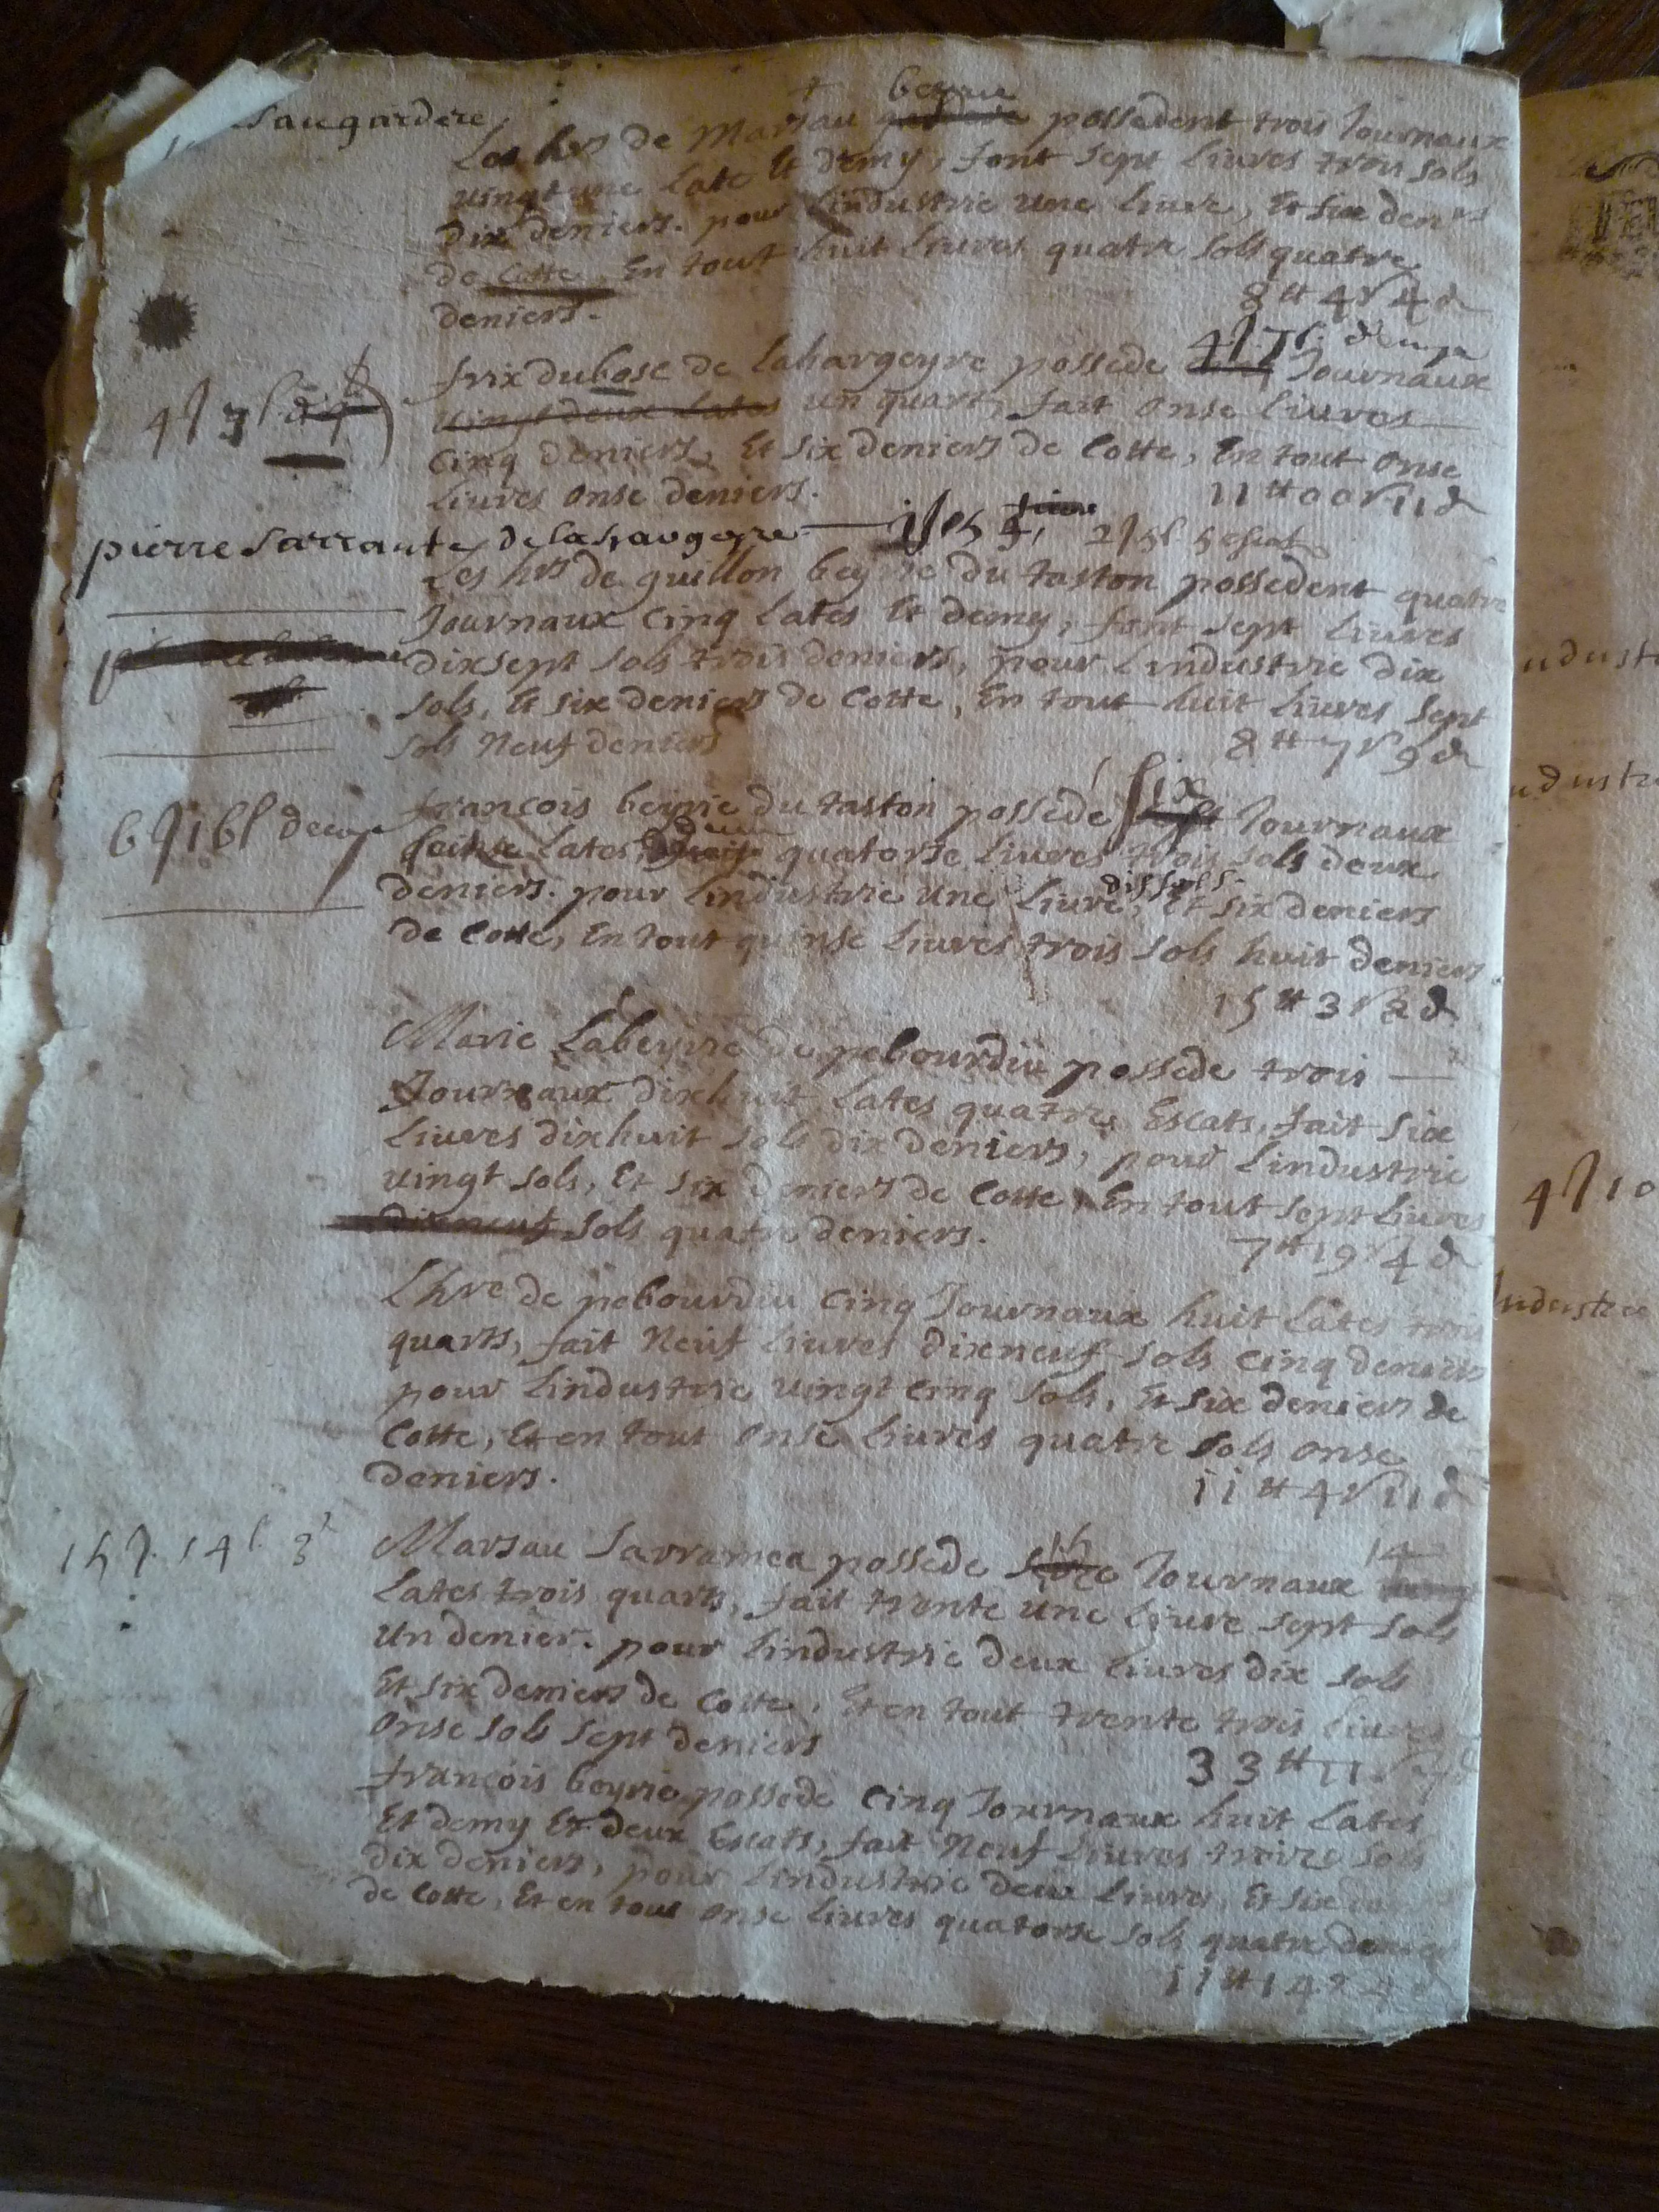 Saugardere
beyrie
Les hrs de Marsau possedent trois Journaux
vingt une Late Et demy, font sept Liures trois sols
dix deniers. pour Lindustrie une Liure, Et six denrs
de Cotte, En tout huit Liures quatre sols quatre
deniers.
8 tt 4 s 4 d
frix dubosc de Lahargeyre possede Journaux
vingt deux Lates un quart, fait onse Liures
Cinq deniers, Et six deniers de Cotte, En tout onse
Liures onse deniers.
11 tt 00 s 11 d
pierre Sarraute de
Les hrs de guillon beyrie du taston possedent quatre
Journaux Cinq Lates Et demy, font sept Liures
dixsept sols trois deniers, pour Lindustrie dix
sols, Et six deniers de Cotte, En tout huit Liures sept
sols Neuf deniers
8 tt 7 s 9 d
six
françois beyrie du taston possede Journaux
Lates, quatorse Liures trois sols deux
dix sols
deniers. pour Lindustrie une Liure, Et six deniers
de Cotte, En tout quinse Liures trois sols huit deniers
15 tt 3 s 8 d
Marie Labeyrie de pebourdiu possede trois
Journaux dixhuit Lates quatre Escats, fait six
Liures dixhuit sols dix deniers, pour Lindustrie
vingt sols, Et six deniers de Cotte, En tout sept Liures
dixneuf sols quatre deniers.
7 tt 19 s 4 d
Lhre de pebourdiu Cinq Journaux huit Lates trois
quarts, fait Neuf Liures dixneuf sols Cinq deniers
pour Lindustrie vingt Cinq sols, Et six deniers de
Cotte, Et en tout onse Liures quatre sols onse
deniers.
11 tt 4 s 11 d
15 14
Marsau Sarramea possede Journaux
Lates trois quarts, fait trente une Liure sept sols
un denier. pour Lindustrie deux Liures dix sols
Et six deniers de Cotte, Et en tout trente trois Liures
onse sols sept deniers
33 tt 11 s 7 d
françois beyrie possede Cinq Journaux huit Lates
Et demy Et deux Escats, fait Neuf Liures treize sols
dix deniers, pour Lindustrie deux Liures, Et six
de Cotte, Et en tout onse Liures quatorse sols quatre deniers
11 tt 14 s 4 d